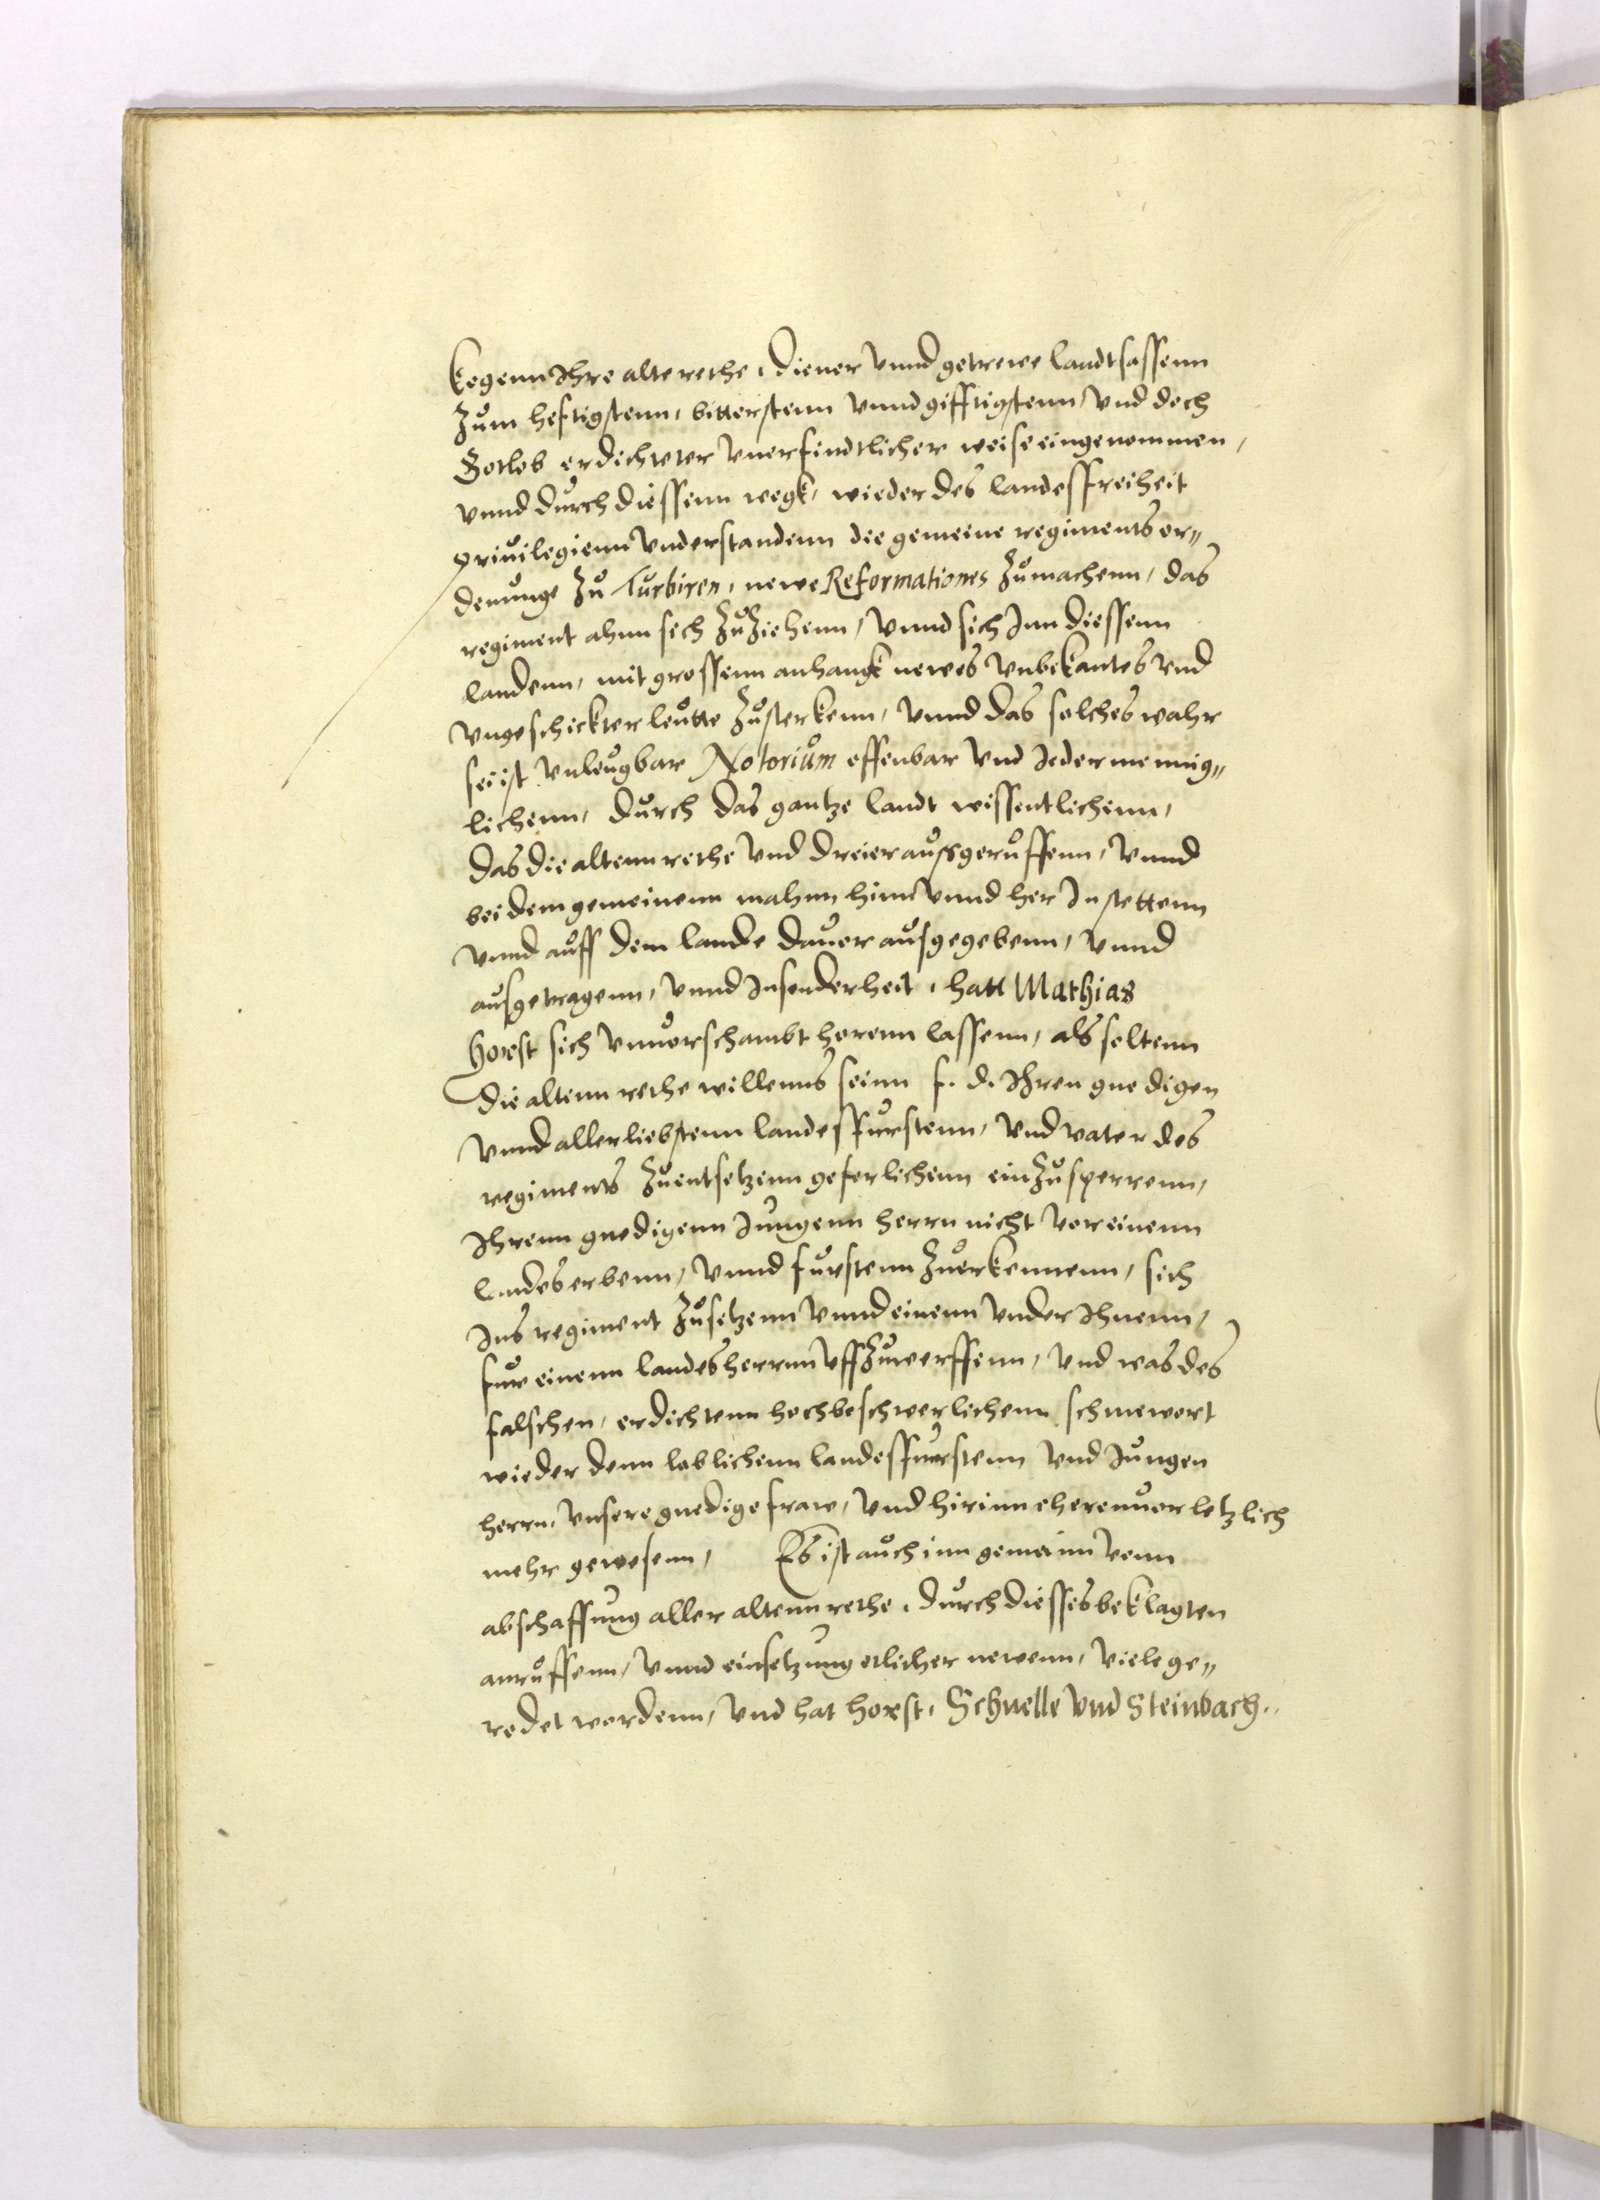 kegenn Ihre alte rethe, diener vnnd getrewe landtsassenn
zum heftigstenn, bitterstenn vnnd gifftigstenn, vnd doch
Gotlob erdichter vnerfindtlicher weise eingenommen,
vnnd durch diessenn wegk, wieder des landesfreiheit
priuilegienn vnderstandenn die gemeine regiments or„
denunge zu Turbiren, newe Reformationes zumachenn, das
regiment ahnn sich zuziehenn, vnnd sich Inn diessenn
landenn, mit grossenn anhangk newes vnbekantes vnd
vngeschickter leutte zusterkenn, vnnd das solches wahr
sei ist vnleugbar Notorium offenbar vnd Jedermennig„
lichenn, durch das gantze landt wissentlichenn,
das die altenn rethe vnd dreier aussgeruffenn, vnnd
bei dem gemeinenn mahnn hinn vnnd her In stettenn
vnnd auff dem lande dauor ausgegebenn, vnnd
ausgetragenn, vnnd Insonderheit, hatt Mathias
Horst sich vnuorschambt horenn lassenn, als soltenn
die altenn rethe willenns seinn f. d. Ihren gnedigen
vnnd allerliebstenn landesfurstenn, vnd vater des
regiments zuentsetzenn geferlichenn einzusperrenn,
Ihrenn gnedigenn Jungenn herrn nicht vor einenn
landeserbenn, vnnd furstenn zuerkennenn, sich
Ins regiment zusetzenn vnnd einenn vnder Ihnenn,
fur einenn landesherrnn vffzuwerffenn, vnd was des
falschen, erdichtenn hochbeschwerlichenn schmewort
wieder denn loblichenn landesfurstenn vnd Jungen
herrn, vnsere gnedige fraw, vnd hirinn eherenuorletzlich
mehr gewesenn, Es ist auch inn gemeinn vonn
abschaffung aller altenn rethe, durch diesses beklagten
anruffenn, vnnd einsetzung etlicher newenn, viele ge„
redet wordenn, vnd hat Horst, Schnelle vnd Steinbach